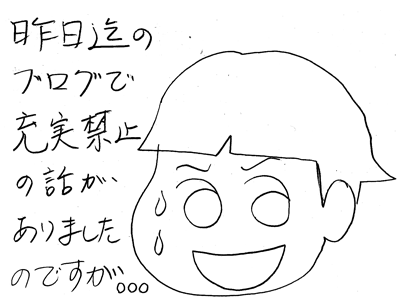 昨日迄の
ブログで
充実禁止
の話が、
ありました
のですが。。。